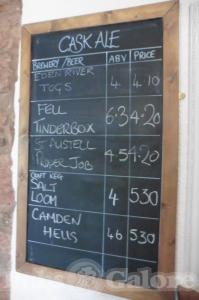 CASK ALE
BREWERY/BEER ABV PRICE
EDEN RIVER
TOGS 4. 4.10
FELL
TINDERBOX 6.3 4.20
ST AUSTELL
TINDER JOB 4.5 4.20
CRAFT KEG
SALT
LOOM 4 5.30
CAMDEN
HELLS 4.6 5.30
Galore